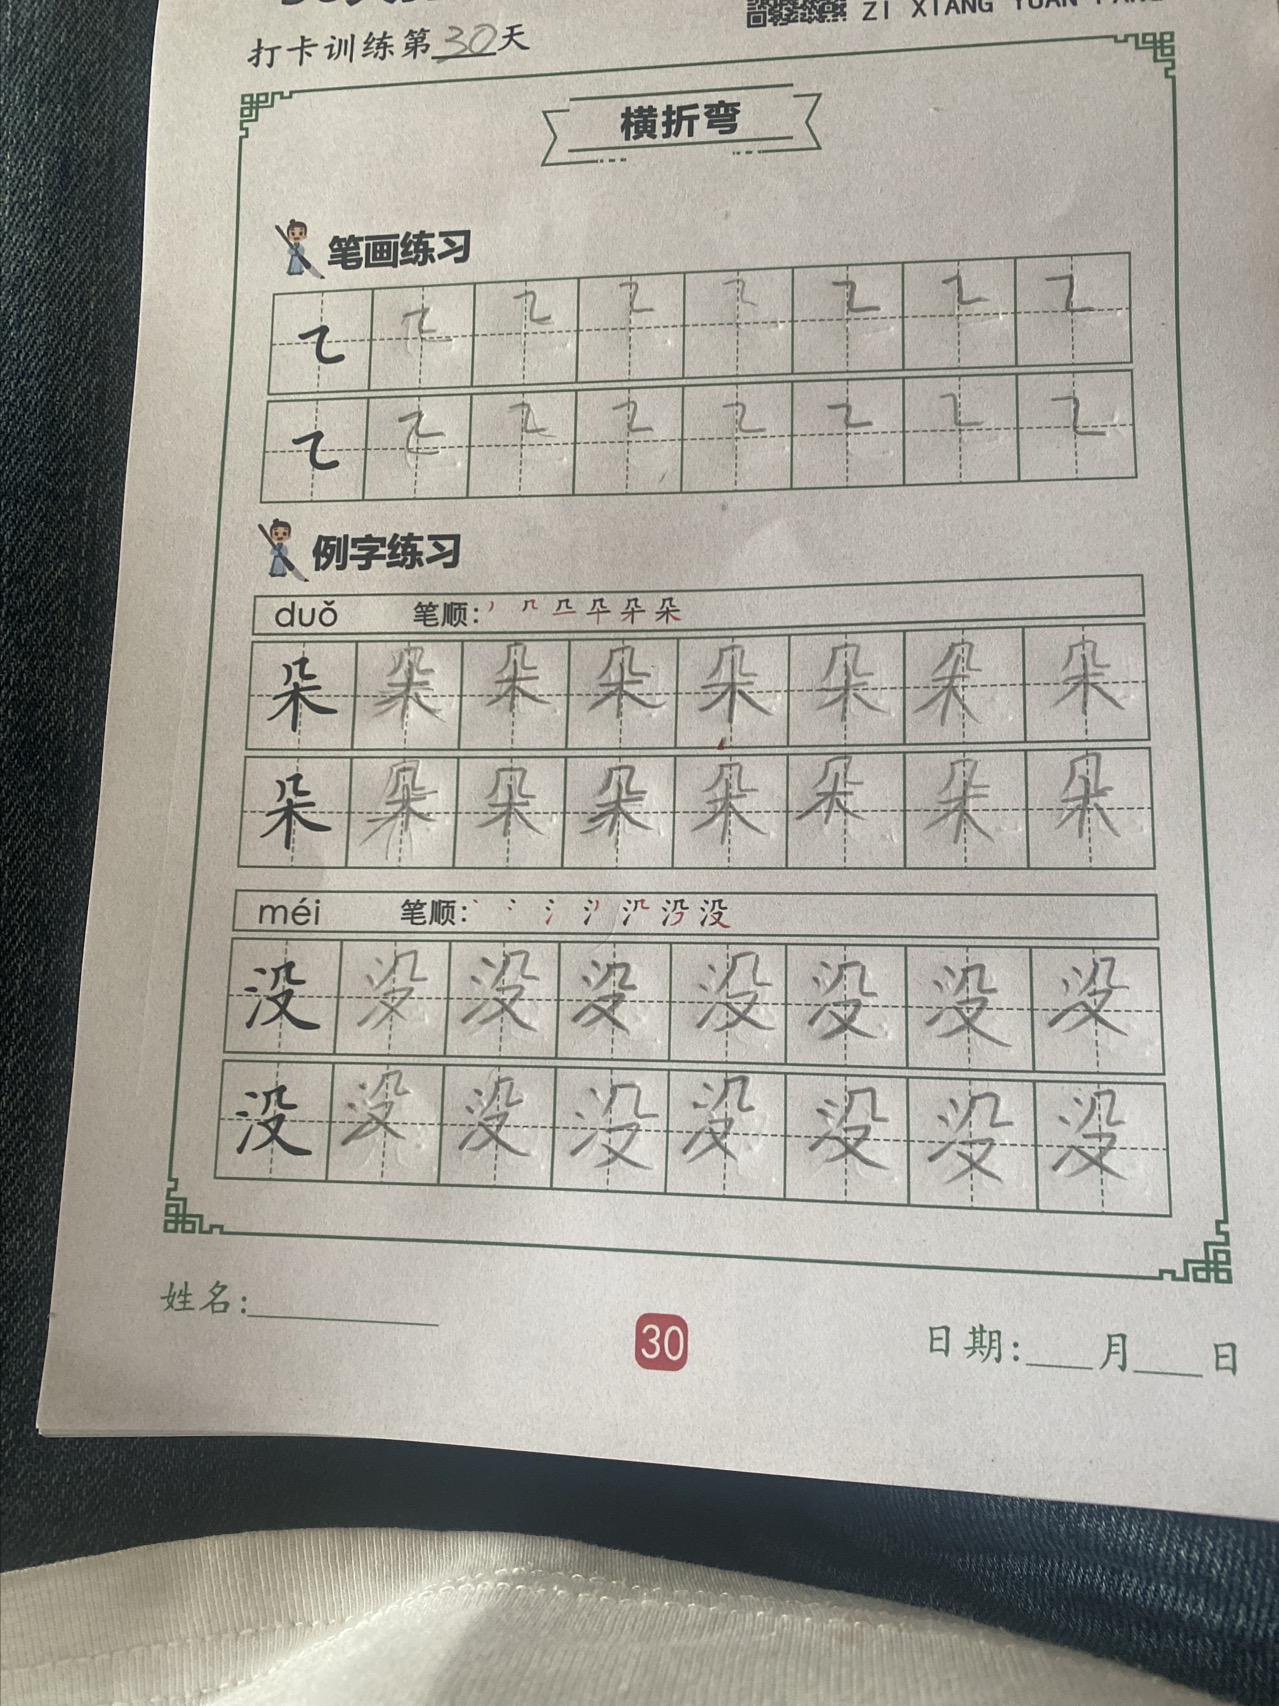 ZI XIANG YUAN
打卡训练第30天
横折弯
笔画练习
㇍ ㇍ ㇍ ㇍ ㇍ ㇍ ㇍ ㇍
㇍ ㇍ ㇍ ㇍ ㇍ ㇍ ㇍ ㇍
例字练习
duǒ 笔顺: 朵
朵 朵 朵 朵 朵 朵 朵 朵
朵 朵 朵 朵 朵 朵 朵 朵
méi 笔顺: 没
没 没 没 没 没 没 没 没
没 没 没 没 没 没 没 没
姓名:
30
日期: 月 日